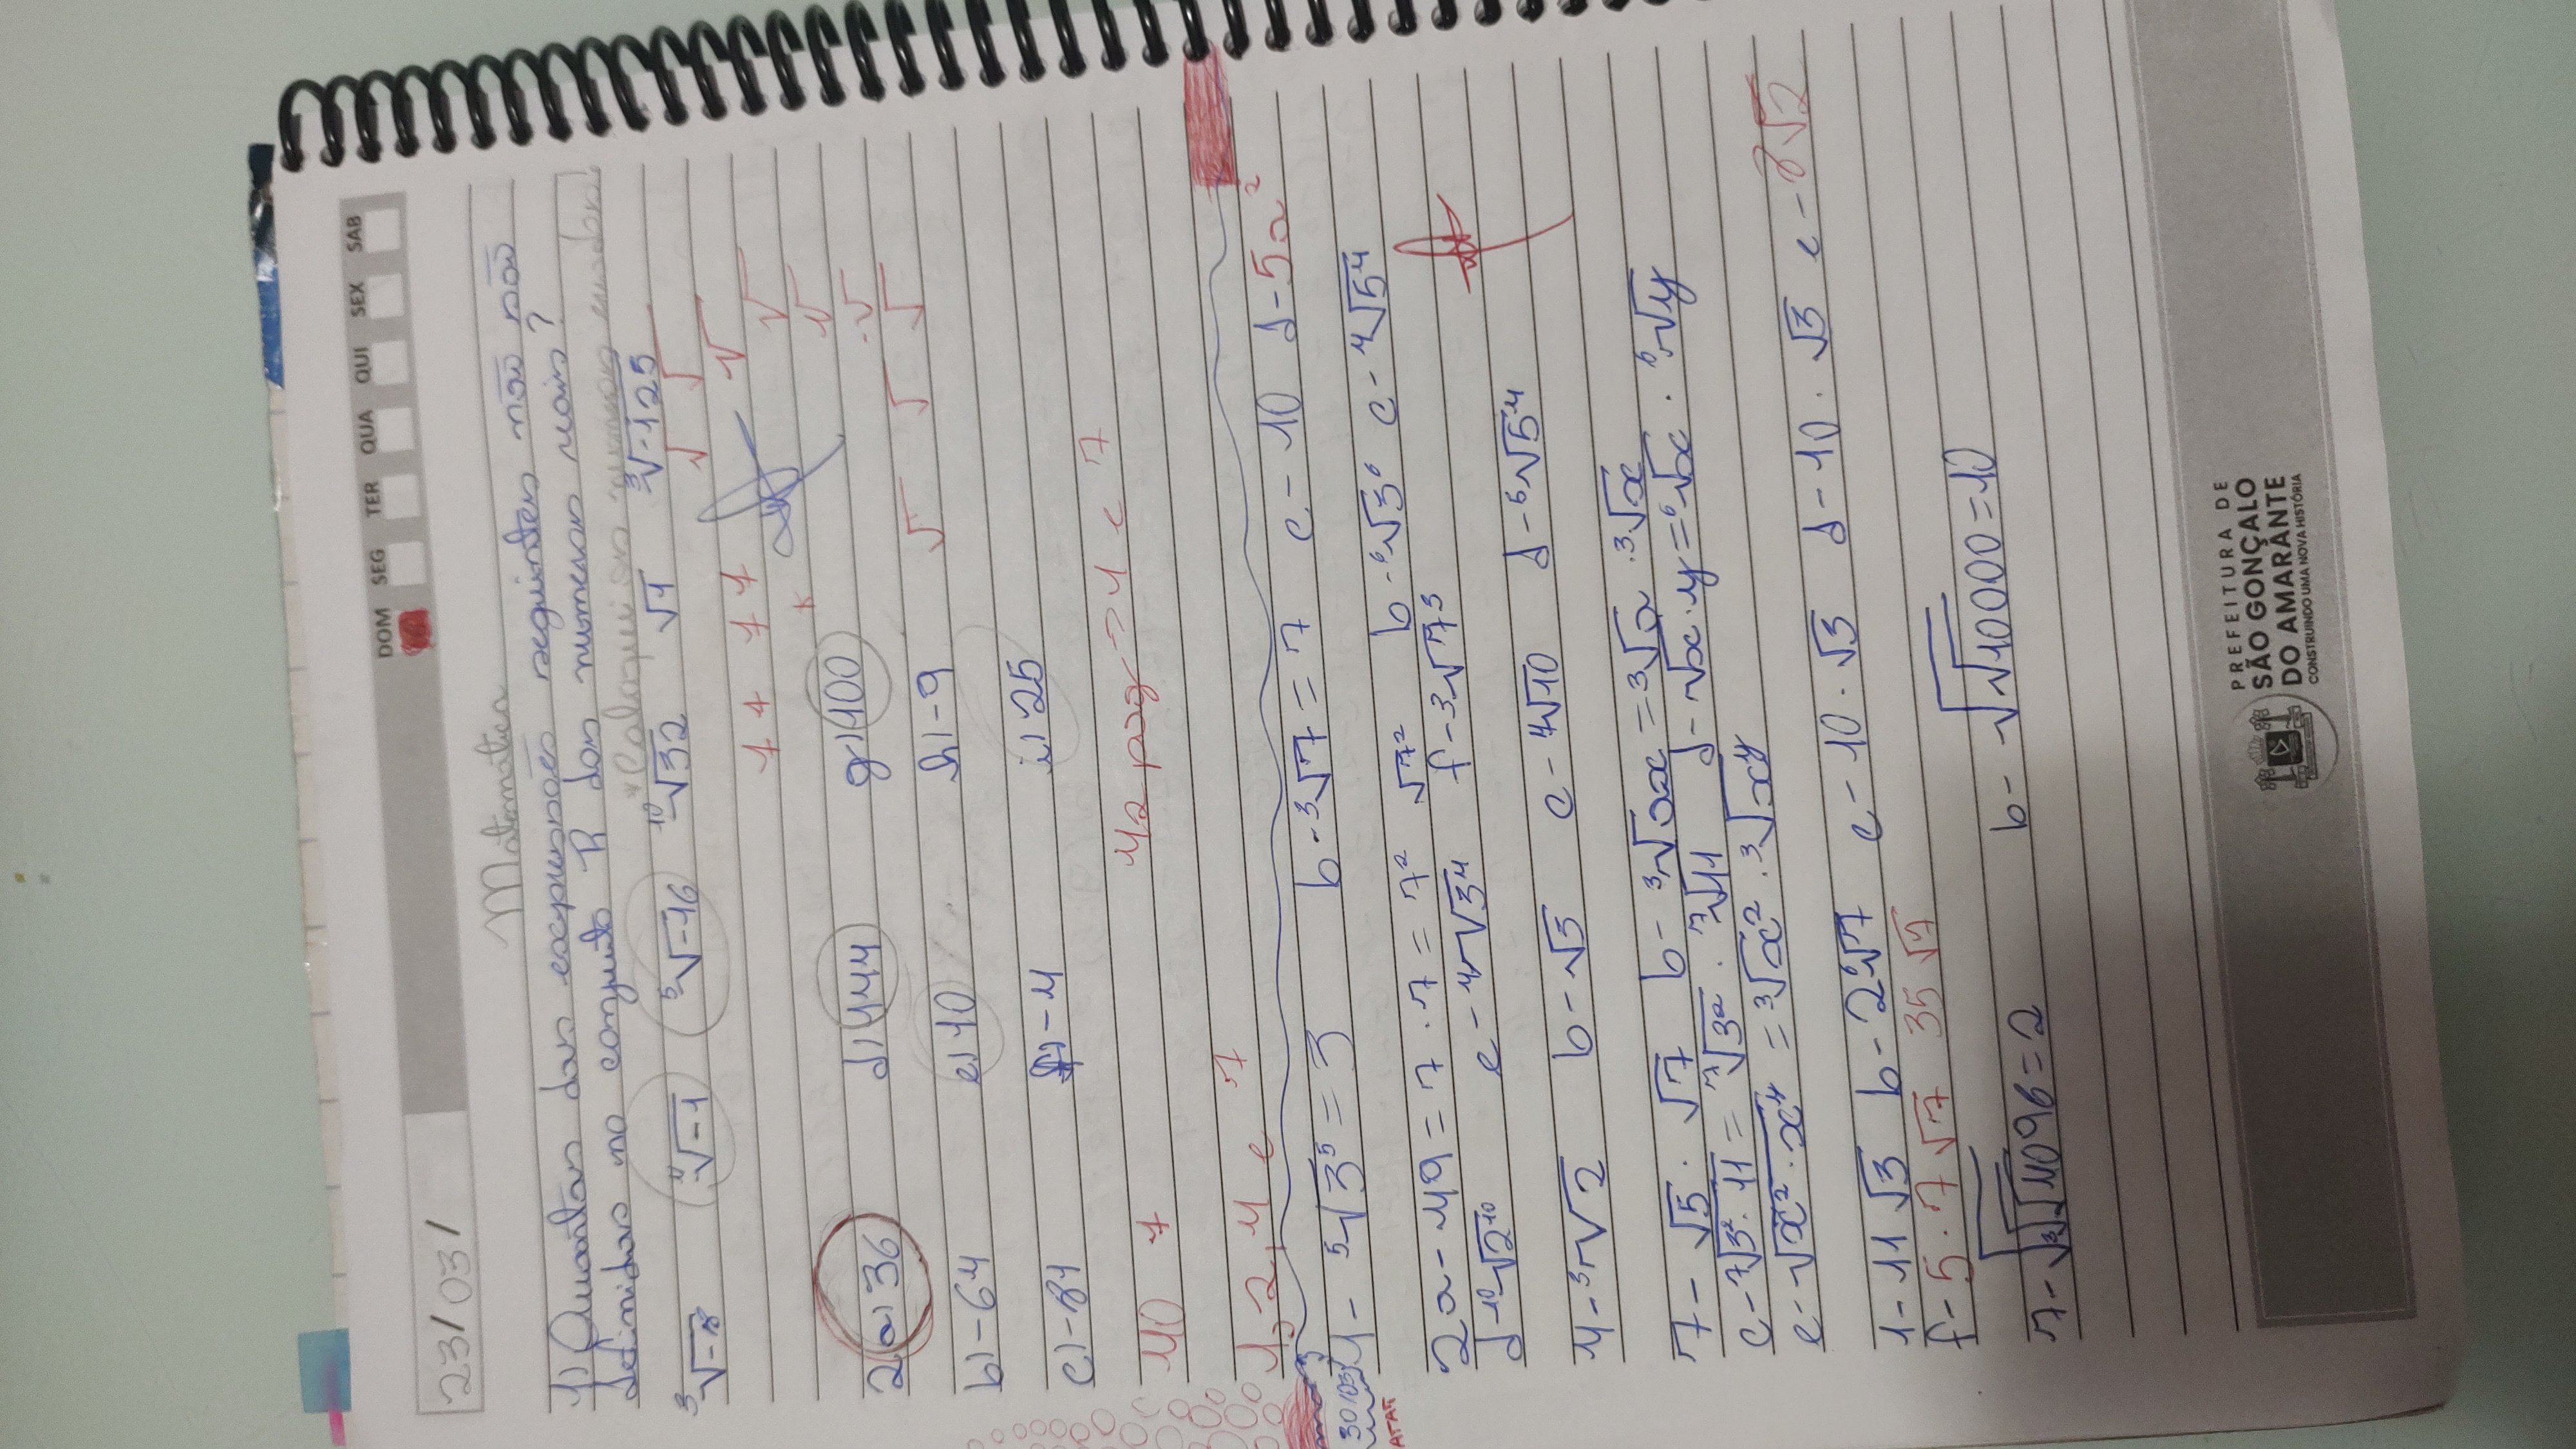 DOM SEG TER QUA QUI SEX SAB
23/03/
Matematica
1) Quantas das expressões seguintes não são
definidas no conjunto R dos numeros reais?
*Coloquei os numeros
³√-8 ⁴√-1 ⁵√-16 ¹⁰√32 √1 ³√-125
2 a) 36 d) 144 g) 100
b) -64 e) 10 h) -9
c) -81 f) -4 i) 25
40 7 42 pag → 4 e 7
1, 2, 4 e 7
30/03
1- ⁵√3⁵ = 3 b- ³√7 = 7 c- 10 d- 5a²
2a- 49 = 7 . 7 = 7² √7² b- ⁶√3⁶ c- ⁴√5⁴
d- ¹⁰√2¹⁰ e- ⁴√3⁴ f- ³√7³
4- ³√2 b- √3 c- ⁴√10 d- ⁵√5⁴
7- √5 . √7 b- ³√ax = ³√a . ³√x
c- ⁷√3² . 11 = ⁷√3² . ⁷√11 d- √x . y = ⁶√x . ⁶√y
e- √x² . x⁴ = ³√x² . ³√xy
1- 11√3 b- 2⁶√7 c- 10 . √3 d- 10 . √3 e- 8√2
f- 5 . 7√7 35√7
7- √³√√4096 = 2 b- √√10000 = 10
PREFEITURA DE
SÃO GONÇALO
DO AMARANTE
CONSTRUINDO UMA NOVA HISTÓRIA